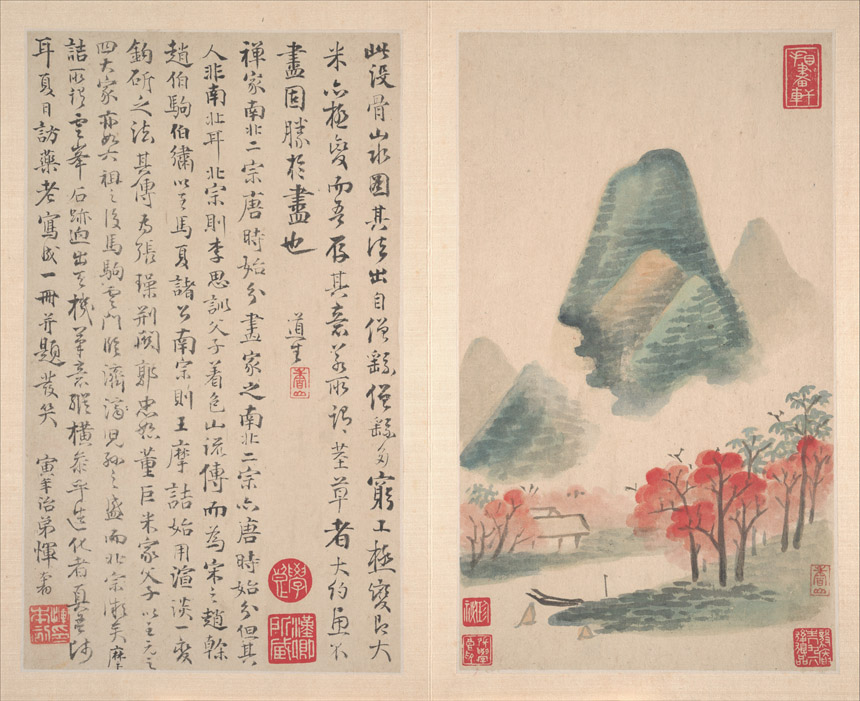 此沒骨山水圖其法出自僧繇僧繇多窮工極變即大
米亦極變而吾存其意若所謂草者大約畫不
盡固勝於盡也
道生
香山
禪家南北二宗唐時始分畫家之南北二宗亦唐時始分但其
人非南北耳北宗則李思訓父子着色山流傳而為宋之趙幹
趙伯駒伯驌以至馬夏諸公南宗則王摩詰始用渲淡一變
鈎斫之法其傳為張璪荊關郭忠恕董巨米家父子以至元之
四大家亦如六祖之後馬駒雲門臨濟兒孫之盛而北宗微矣摩
詰所謂雲峯石跡迥出天機筆意縱橫參乎造化者真吾師
耳夏日訪藥老寫成一冊并題發笑 寅年治弟惲
漢卿所藏
香山